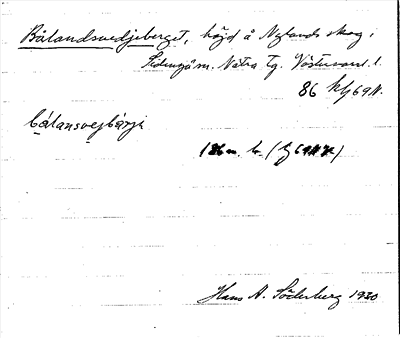 Bålandsvedjeberget, höjd å Nylands skog i
Sidensjö sn. Nätra tg. Västernorrl. l.
86 kf 69 N.
bålansvejbärje
186 m. h. (kf 69 N)
Hans A. Söderberg 1930